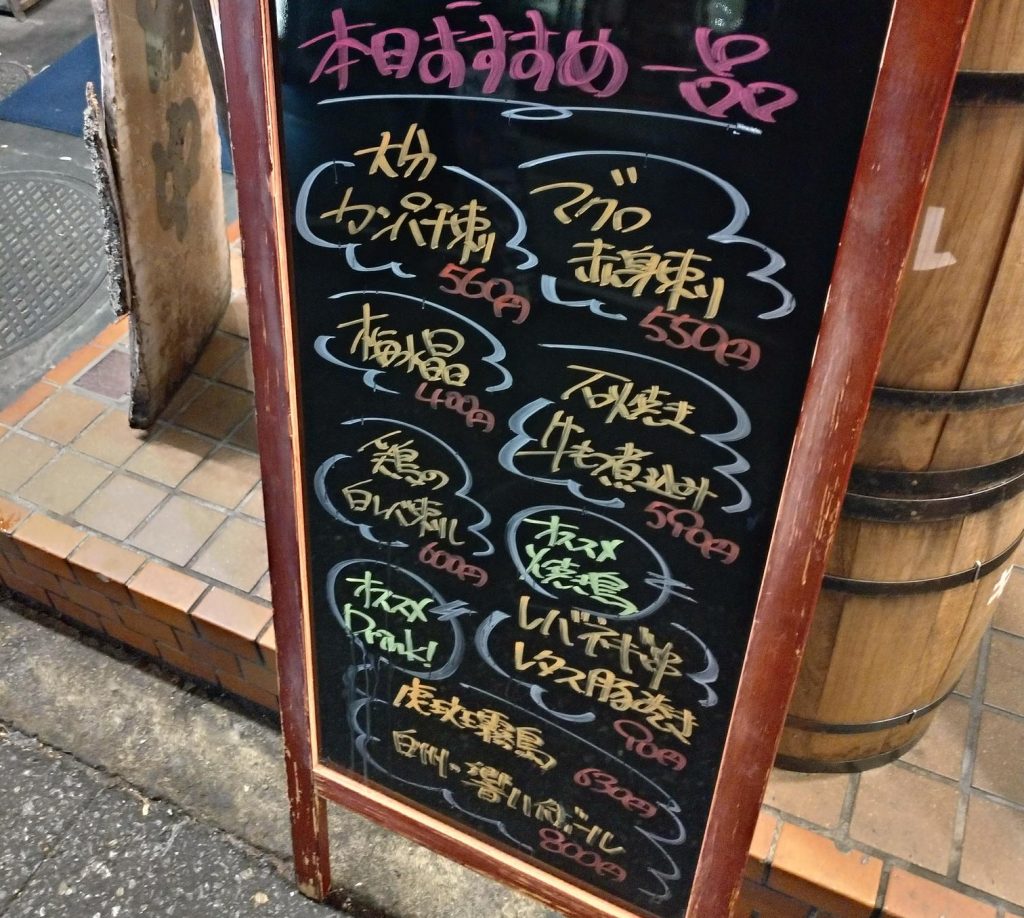 本日おすすめ一品
大分
カンパチ刺
560円
マグロ
赤身刺
550円
梅水晶
400円
石焼き
牛もつ煮込み
590円
鶏の
白レバ刺し
600円
オススメ
焼鳥
レバネギ串
レタス豚巻き
90円
オススメ
Drink!
虎斑霧島
630円
白州・響ハイボール
800円
L